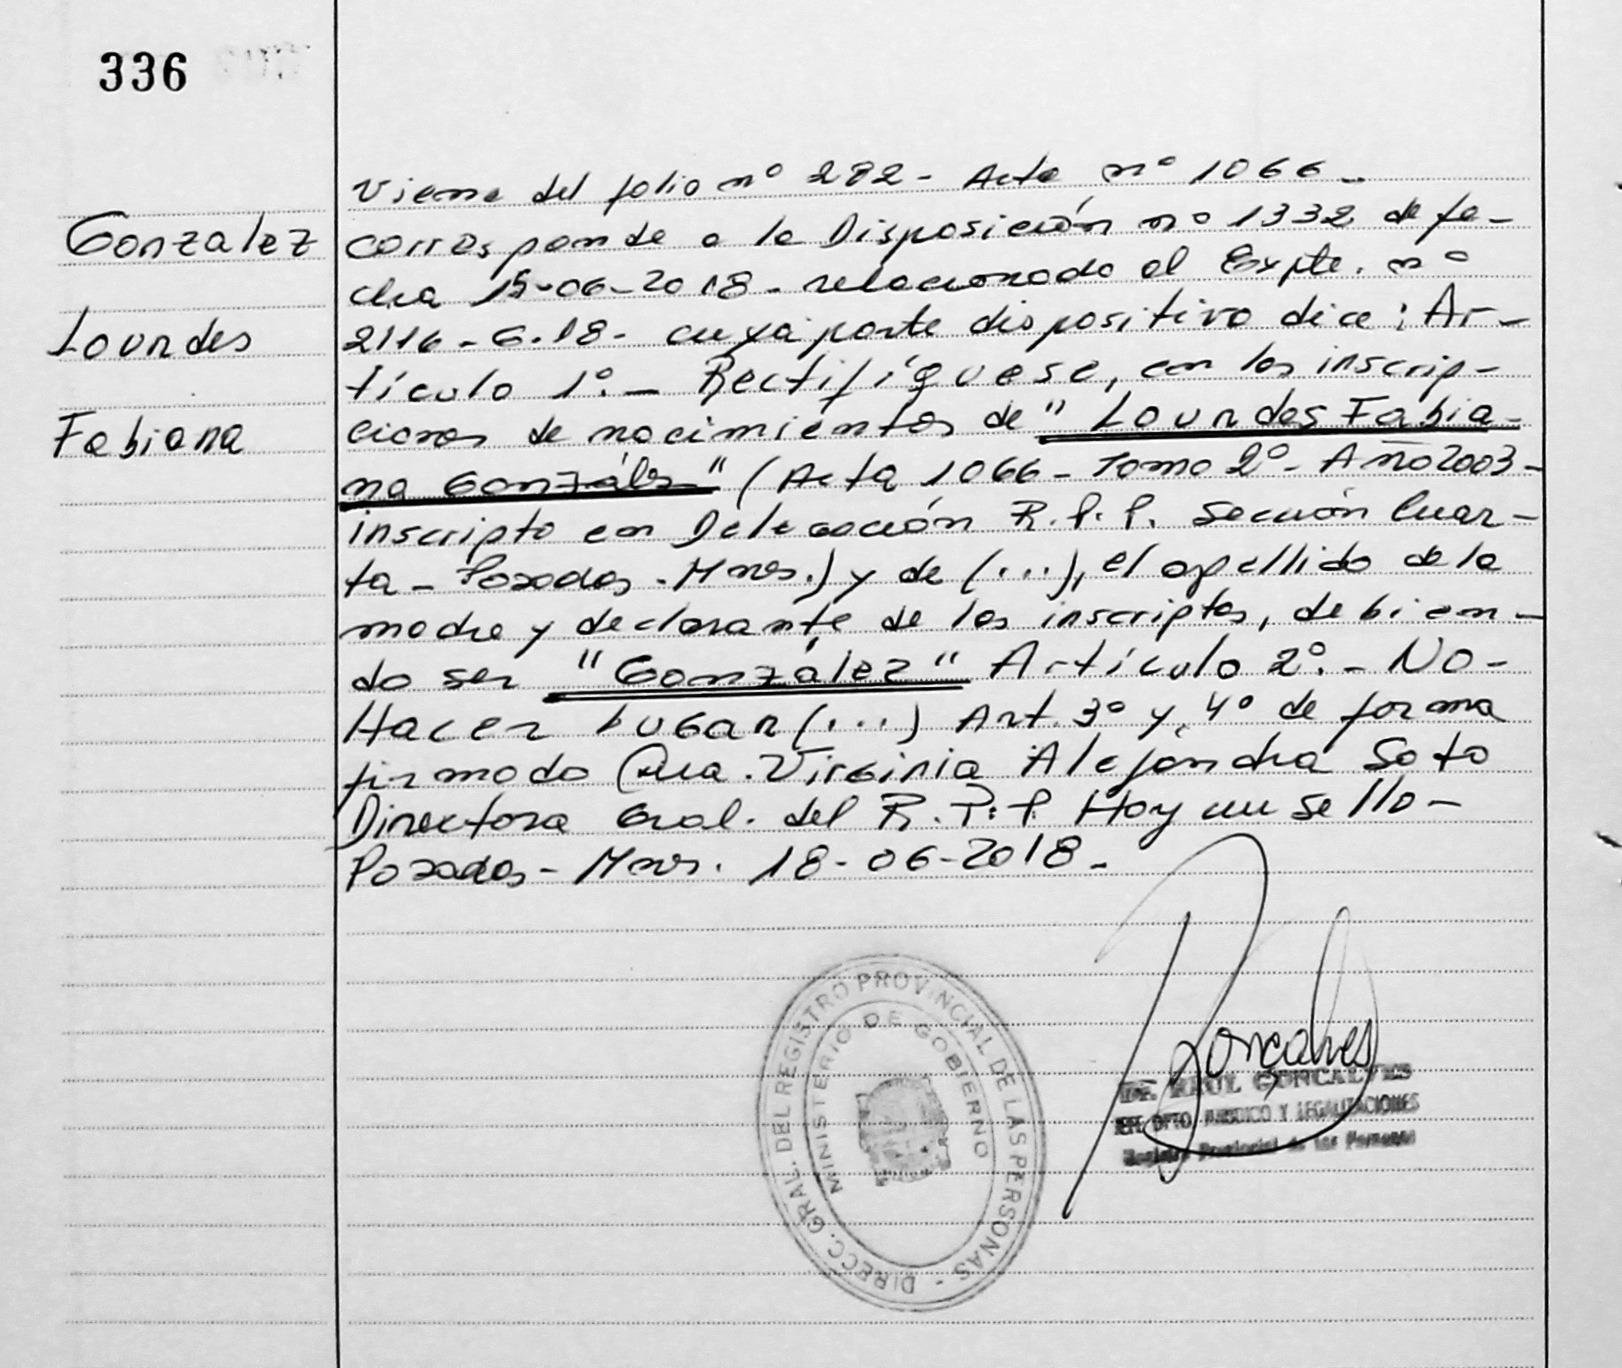 336
Gonzalez
Lourdes
Fabiana
Viene del folio nº 282 - Acta nº 1066 -
corresponde a la Disposición nº 1332 de fe-
cha 15-06-2018 - relacionado al Expte. nº
2116-G-18- cuya parte dispositiva dice: Ar-
tículo 1º. - Rectifíquese, en las inscrip-
ciones de nacimientos de "Lourdes Fabia-
na González" (Acta 1066 - Tomo 2º - Año 2003 -
inscripto en Delegación R.P.P. Sección Cuar-
ta - Posadas - Mnes.) y de (...), el apellido de la
madre y declarante de los inscriptos, debien-
do ser "González" Artículo 2º. - NO-
Hacer Lugar (...) Art. 3º y 4º de forma
firmado Dra. Virginia Alejandra Soto
Directora Gral. del R.P.P. Hay un sello -
Posadas - Mnes. 18-06-2018 -
DIRECC. GRAL. DEL REGISTRO PROVINCIAL DE LAS PERSONAS -
MINISTERIO DE GOBIERNO
Gonçalves
Dr. RAUL GONCALVES
JEFE DPTO. JURIDICO Y LEGALIZACIONES
Registro Provincial de las Personas